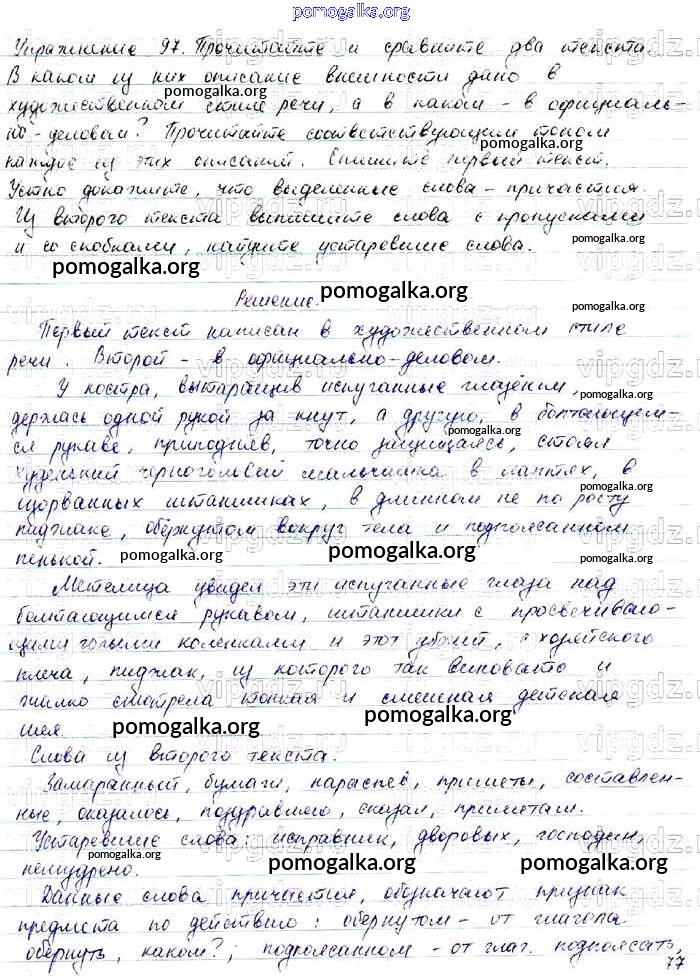 pomogalka.org
Упражнение 97. Прочитайте и сравните два текста.
В каком из них описание внешности дано в
художественном стиле речи, а в каком - в официаль-
но-деловом? Прочитайте соответствующим тоном
каждое из этих описаний. Спишите первый текст.
Устно докажите, что выделенные слова - причастия.
Из второго текста выпишите слова с пропусками
и со скобками, найдите устаревшие слова.
pomogalka.org
Решение. pomogalka.org
Первый текст написан в художественном стиле
речи. Второй - в официально-деловом.
У костра, вытаращив испуганные глазёнки,
держась одной рукой за кнут, а другую, в болтающем-
ся рукаве, приподняв, точно защищаясь, стоял
худенький черноголовый мальчишка в лаптях, в
изорванных штанишках, в длинном не по росту
пиджаке, обёрнутом вокруг тела и подпоясанном
пенькой. pomogalka.org pomogalka.org pomogalka.org
Метелица увидел эти испуганные глаза над
болтающимся рукавом, штанишки с просвечиваю-
щими голыми коленками и этот убогий, с хозяйского
плеча, пиджак, из которого так виновато и
жалко смотрела тонкая и смешная детская
шея pomogalka.org pomogalka.org
Слова из второго текста.
Замаранный, бумаги, нараспев, приметы, составлен-
ные, оказалось, поздравляю, сказал, приметам.
Устаревшие слова: исправник, дворовых, господин,
немудрено. pomogalka.org pomogalka.org pomogalka.org
Данные слова причастия, обозначают признак
предмета по действию: обернутом - от глагола
обернуть, каком?; подпоясанном - от глаг. подпоясать,
77